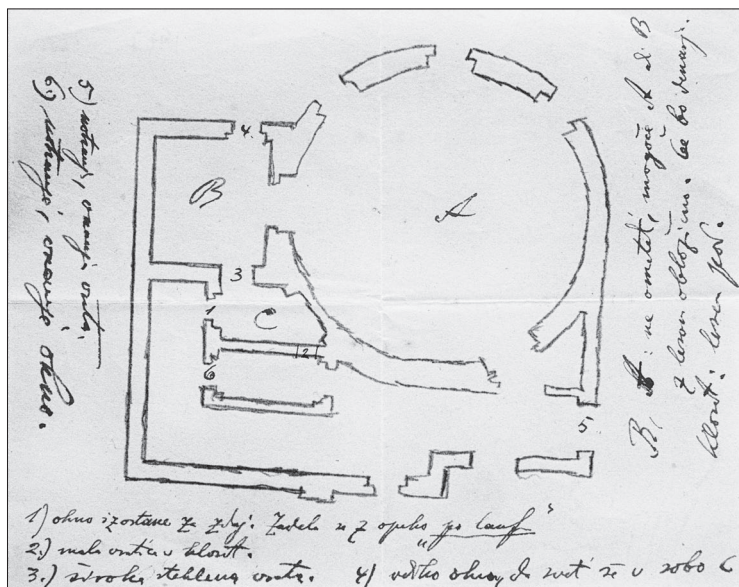 5) notranja, zunanja vrata.
6) notranje, zunanje okno.
4.
B
A
3
1
C
2
6
5.
B, A : ne ometat, mogoče A ali B
z lesom obložimo. Če bo denarja.
lesen pod.
1) okno izostane za zdaj. Zadela se z opeko „po lauf“
2.) mala vratica v
3.) široka steklena vrata. 4) veliko okno, da sveti še v sobo C